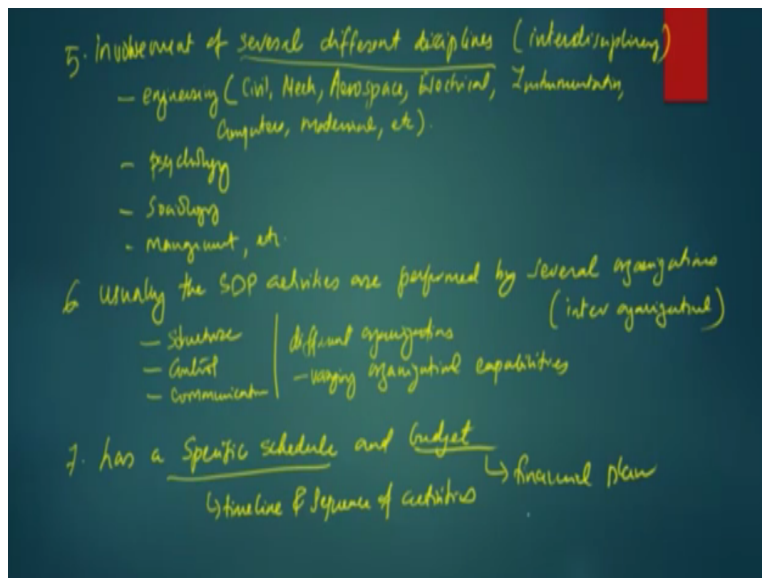 5. Involvement of several different disciplines (interdisciplinary)
- engineering (Civil, Mech, Aerospace, Electrical, Instrumentation,
Computers, etc).
- psychology
- Sociology
- Management, etc.
6 usually the SDP activities are performed by several organizations
(inter organizational)
- Structure
- Control
- Communication
different organizations
- varying organizational capabilities
7. has a specific schedule and budget
↳ financial plan
↳ timeline & sequence of activities